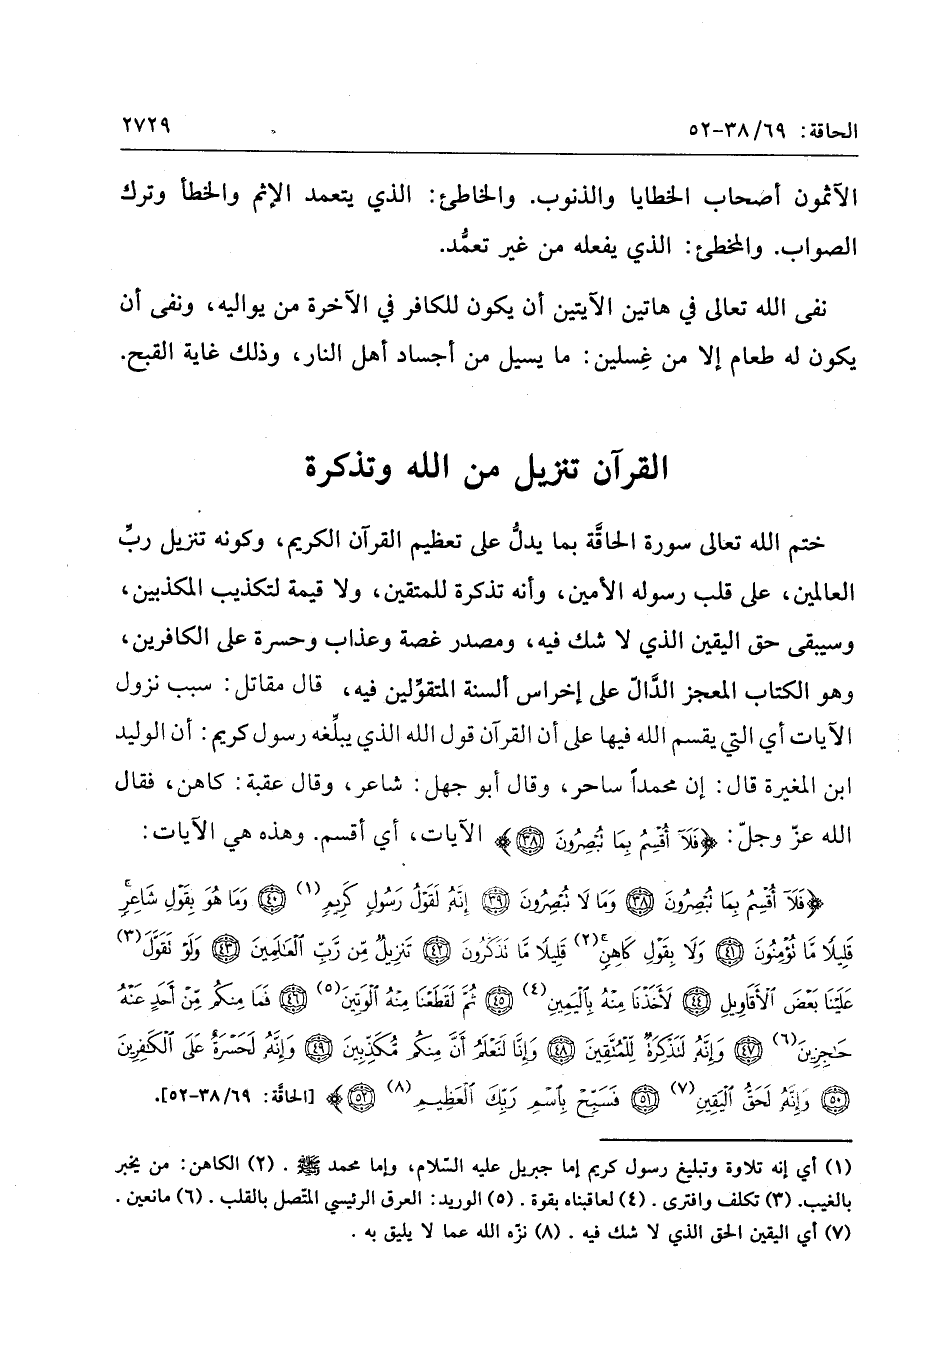 الحاقة: ٦٩/ ٣٨-٥٢ ٢٧٢٩
الآثمون أصحاب الخطايا والذنوب. والخاطئ: الذي يتعمد الإثم والخطأ وترك
الصواب. والمخطئ: الذي يفعله من غير تعمُّد.
نفى الله تعالى في هاتين الآيتين أن يكون للكافر في الآخرة من يواليه، ونفى أن
يكون له طعام إلا من غِسلين: ما يسيل من أجساد أهل النار، وذلك غاية القبح.
القرآن تنزيل من الله وتذكرة
ختم الله تعالى سورة الحاقَّة بما يدلُّ على تعظيم القرآن الكريم، وكونه تنزيل ربِّ
العالمين، على قلب رسوله الأمين، وأنه تذكرة للمتقين، ولا قيمة لتكذيب المكذبين،
وسيبقى حق اليقين الذي لا شك فيه، ومصدر غصة وعذاب وحسرة على الكافرين،
وهو الكتاب المعجز الدَّالّ على إخراس ألسنة المتقوِّلين فيه، قال مقاتل: سبب نزول
الآيات أي التي يقسم الله فيها على أن القرآن قول الله الذي يبلِّغه رسول كريم: أن الوليد
ابن المغيرة قال: إن محمداً ساحر، وقال أبو جهل: شاعر، وقال عقبة: كاهن، فقال
الله عزّ وجلّ: ﴿فَلَآ أُقْسِمُ بِمَا تُبْصِرُونَ ٣٨﴾ الآيات، أي أقسم. وهذه هي الآيات:
﴿فَلَآ أُقْسِمُ بِمَا تُبْصِرُونَ ٣٨ وَمَا لَا تُبْصِرُونَ ٣٩ إِنَّهُۥ لَقَوْلُ رَسُولٍ كَرِيمٍ(١) ٤٠ وَمَا هُوَ بِقَوْلِ شَاعِرٍۚ
قَلِيلًا مَّا تُؤْمِنُونَ ٤١ وَلَا بِقَوْلِ كَاهِنٍۚ(٢) قَلِيلًا مَّا تَذَكَّرُونَ ٤٢ تَنزِيلٌ مِّن رَّبِّ ٱلْعَالَمِينَ ٤٣ وَلَوْ تَقَوَّلَ(٣)
عَلَيْنَا بَعْضَ ٱلْأَقَاوِيلِ ٤٤ لَأَخَذْنَا مِنْهُ بِٱلْيَمِينِ(٤) ٤٥ ثُمَّ لَقَطَعْنَا مِنْهُ ٱلْوَتِينَ(٥) ٤٦ فَمَا مِنكُم مِّنْ أَحَدٍ عَنْهُ
حَاجِزِينَ(٦) ٤٧ وَإِنَّهُۥ لَتَذْكِرَةٌ لِّلْمُتَّقِينَ ٤٨ وَإِنَّا لَنَعْلَمُ أَنَّ مِنكُم مُّكَذِّبِينَ ٤٩ وَإِنَّهُۥ لَحَسْرَةٌ عَلَى ٱلْكَٰفِرِينَ
٥٠ وَإِنَّهُۥ لَحَقُّ ٱلْيَقِينِ(٧) ٥١ فَسَبِّحْ بِٱسْمِ رَبِّكَ ٱلْعَظِيمِ(٨) ٥٢﴾ [الحاقَّة: ٦٩/ ٣٨-٥٢].
(١) أي إنه تلاوة وتبليغ رسول كريم إما جبريل عليه السّلام، وإما محمد ﷺ. (٢) الكاهن: من يخبر
بالغيب. (٣) تكلف وافترى. (٤) لعاقبناه بقوة. (٥) الوريد: العرق الرئيسي المتّصل بالقلب. (٦) مانعين.
(٧) أي اليقين الحق الذي لا شك فيه. (٨) نزّه الله عما لا يليق به.